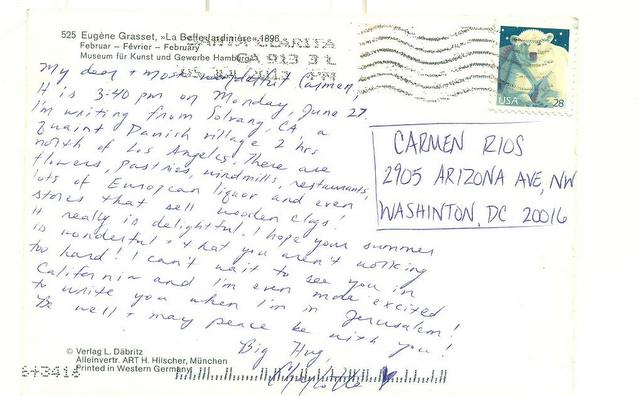 525 Eugène Grasset, »La Belle Jardinière« 1896
Februar – Février – February
Museum für Kunst und Gewerbe Hamburg
SANTA CLARITA
CA 913 3 L
PM
USA 28
My dear + most wonderful Carmen,
It is 3:40 pm on Monday, June 27.
I'm writing from Solvang, CA a
quaint Danish village 2 hrs
north of Los Angeles. There are
flowers, pastries, windmills, restaurants,
lots of European liquor and even
stores that sell wooden clogs!
It really is delightful. I hope your summer
is wonderful + that you aren't working
too hard! I can't wait to see you in
California and I'm even more excited
to write you when I'm in Jerusalem!
Be well + may peace be with you!
Big Hug,
CARMEN RIOS
2905 ARIZONA AVE, NW
WASHINTON, DC 20016
© Verlag L. Däbritz
Alleinvertr. ART H. Hilscher, München
Printed in Western Germany
6+3416